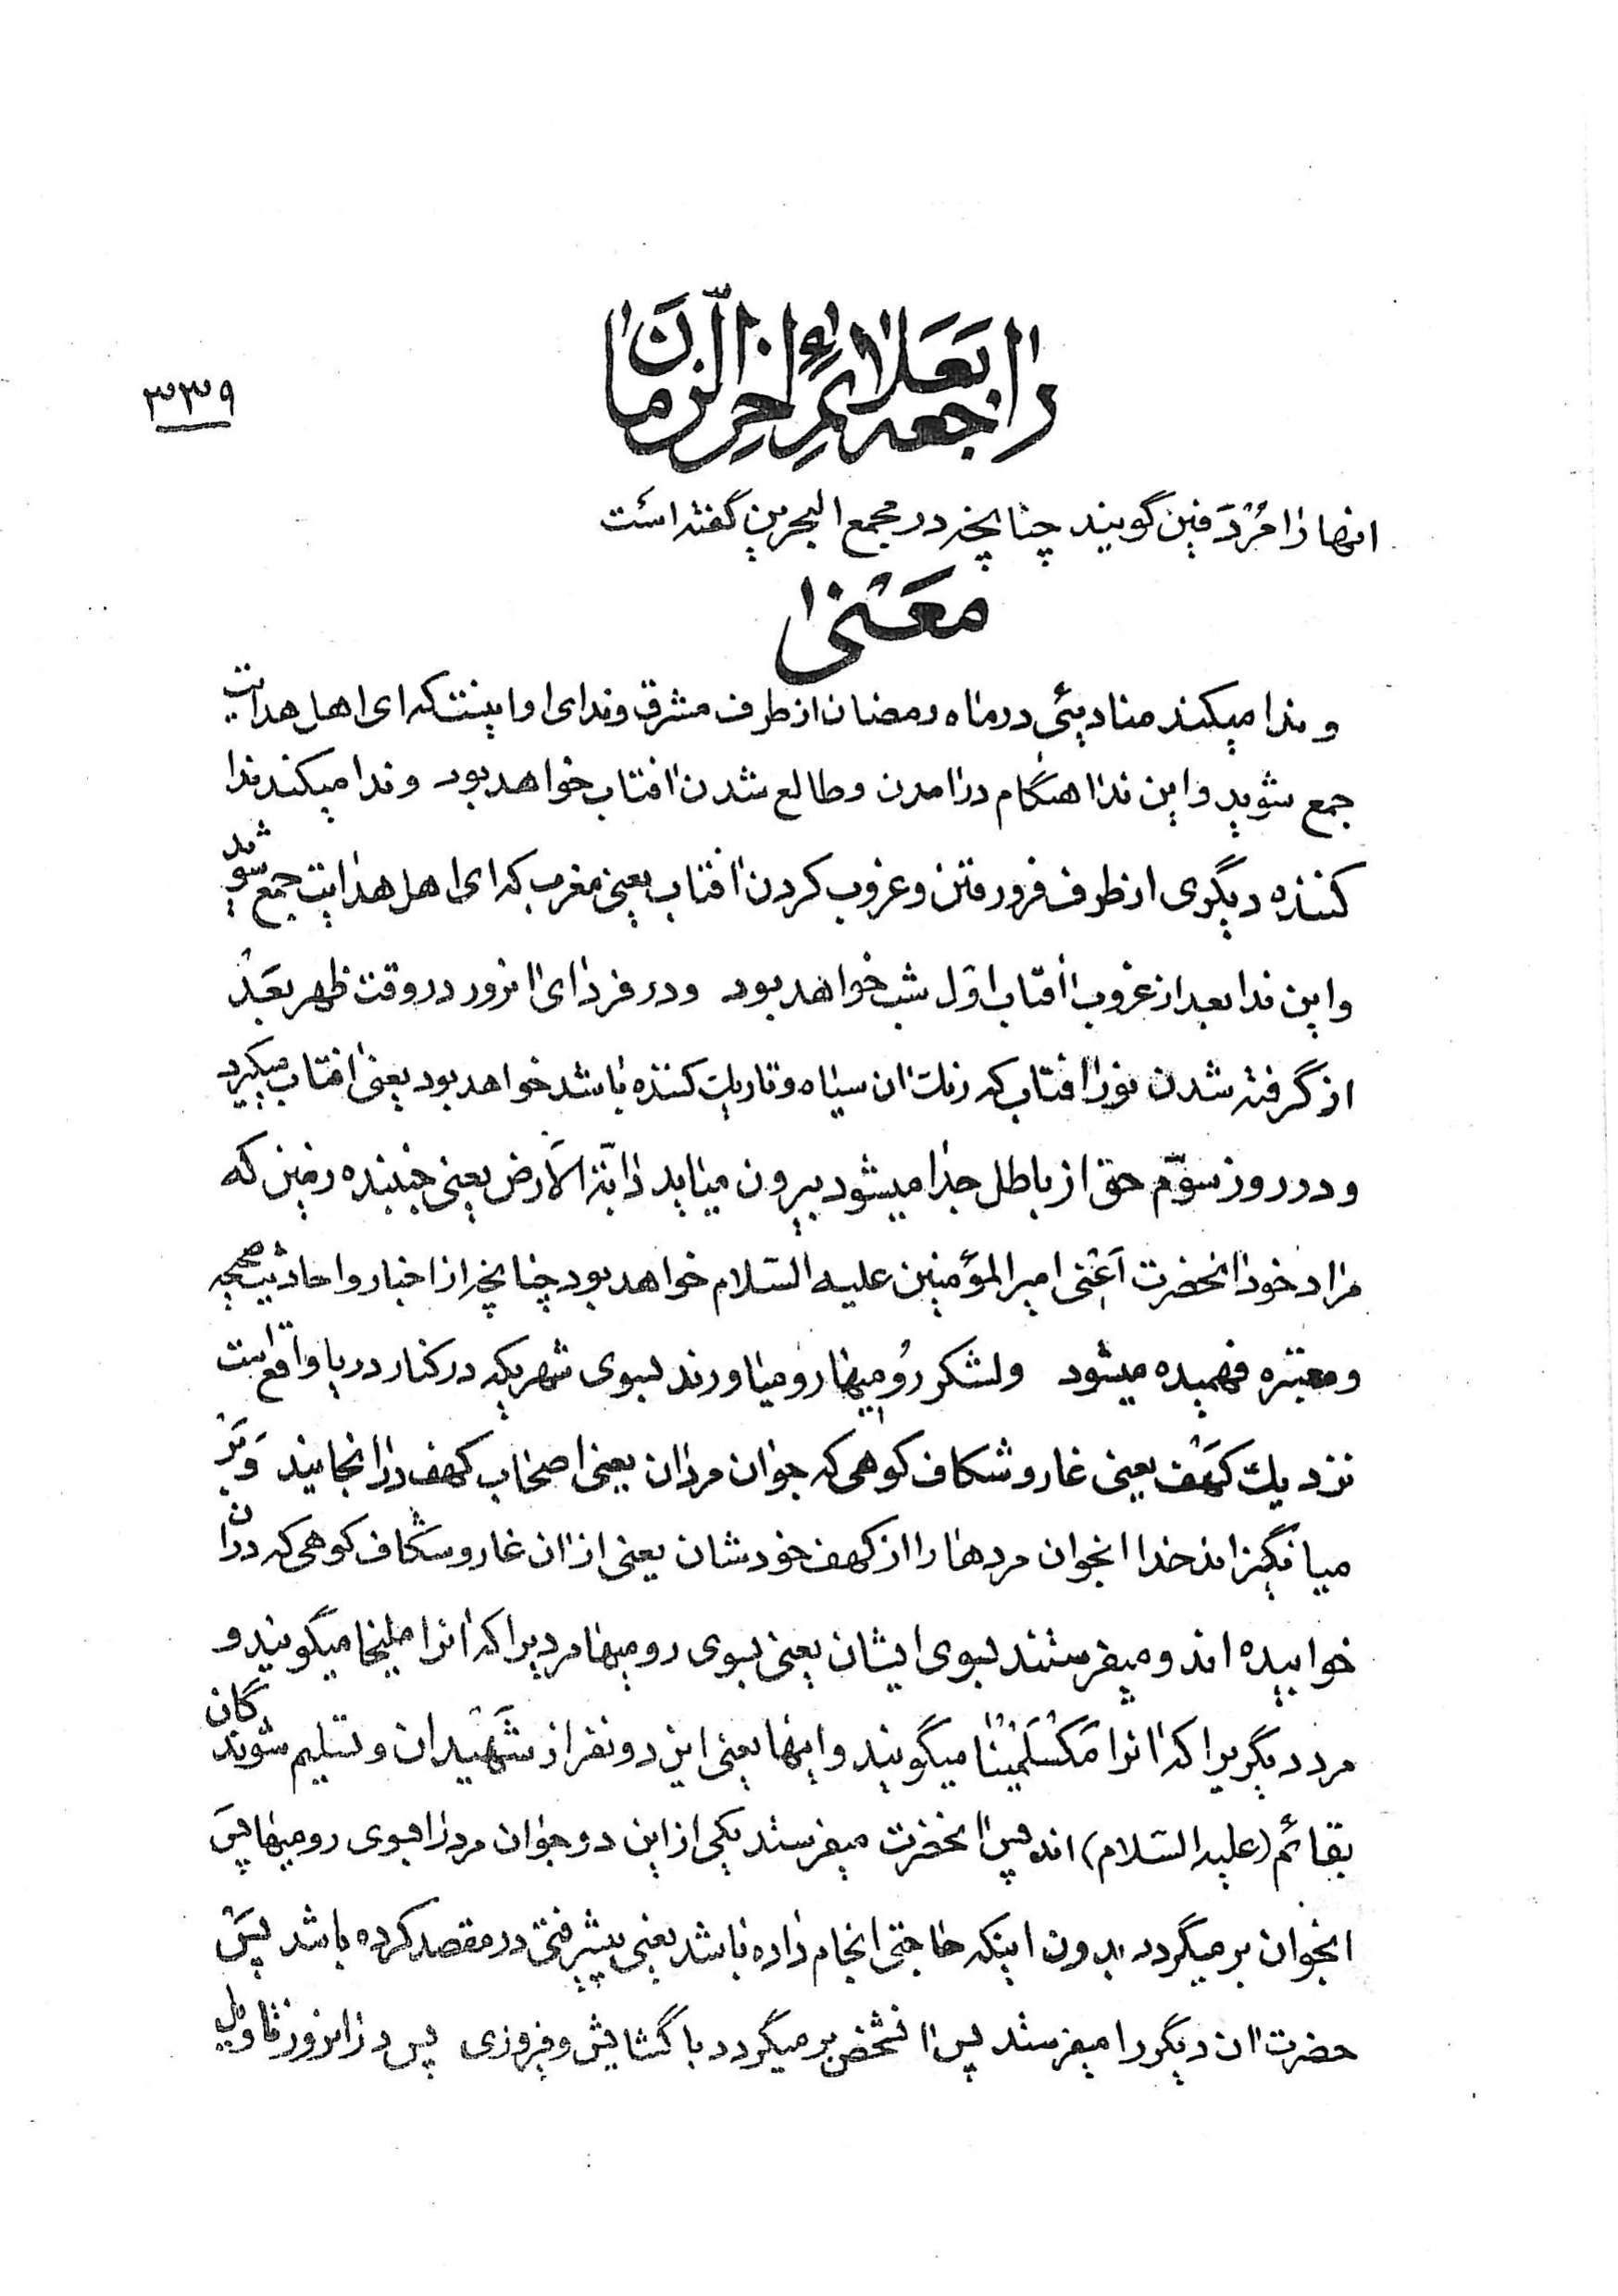 راجعه بعلائم اخر الزمان
۳۳۹
انها را مردفین گویند چنانچه در مجمع البحرین گفته است
معنی
و ندا میکند منادیئی در ماه رمضان از طرف مشرق و ندای او اینست که ای اهل هدایت
جمع شوید و این ندا هنگام در امدن و طالع شدن افتاب خواهد بود و ندا میکند ندا
کننده دیگری از طرف فرو رفتن و غروب کردن افتاب یعنی مغرب که ای اهل هدایت جمع شوید
و این ندا بعد از غروب افتاب اوّل شب خواهد بود و در فردای انروز در وقت ظهر بعَد
از گرفته شدن نور افتاب که رنك ان سیاه و تاریك کننده باشد خواهد بود یعنی افتاب میگیرد
و در روز سوّم حق از باطل جدا میشود بیرون میاید دابّة الاَرض یعنی جنبنده زمین که
مراد خود انحضرت اَعنی امیر المؤمنین علیه السّلام خواهد بود چنانچه از اخبار و احادیث صحیحه
و معتبره فهمیده میشود و لشکر رُومیها رو میاورند بسوی شهریکه در کنار دریا واقع است
نزدیك کهَف یعنی غار و شکاف کوهی که جوان مردان یعنی اصحاب کهف در انجایند وَ بَر
میانگیزاند خدا انجوان مردها را از کهف خودشان یعنی از ان غار و شکاف کوهی که در ان
خوابیده اند و میفرستند بسوی ایشان یعنی بسوی رومیها مردیرا که انرا ملیخا میگویند و
مرد دیگریرا که انرا مَکسَلَمینا میگویند و اینها یعنی این دو نفر از شَهیدان و تسلیم شوندگان
بقائم (علیه السّلام) اند پس انحضرت میفرستد یکی از این دو جوان مرد را بسوی رومیها پسَ
انجوان بر میگردد بدون اینکه حاجتی انجام داده باشد یعنی پیشرفتی در مقصد کرده باشد پسَ
حضرت ان دیگر را میفرستد پس انشخص بر میگردد با گشایش و فیروزی پس در انروز تاویل